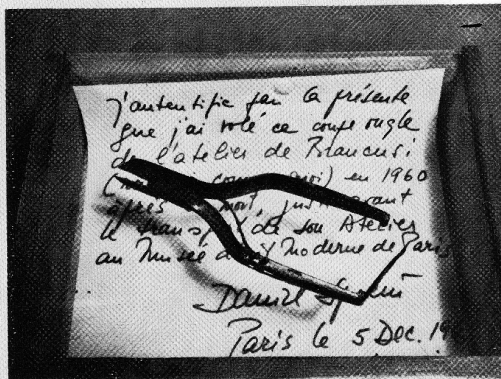 j'autentifie par la présente
que j'ai volé ce coupe ongle
de l'atelier de Brancusi
en 1960
après mort, juste avant
le transf de son Atelier
au Musée d Moderne de Paris
Daniel
Paris le 5 Dec. 19